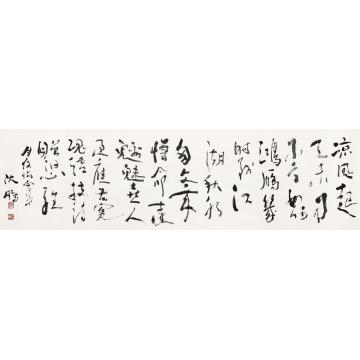 凉风起
天末君
子意如何
鸿雁几
时到江
湖秋水
多文章
憎命达
魑魅喜人
过应共冤
魂语投诗
赠汨罗
沈鹏